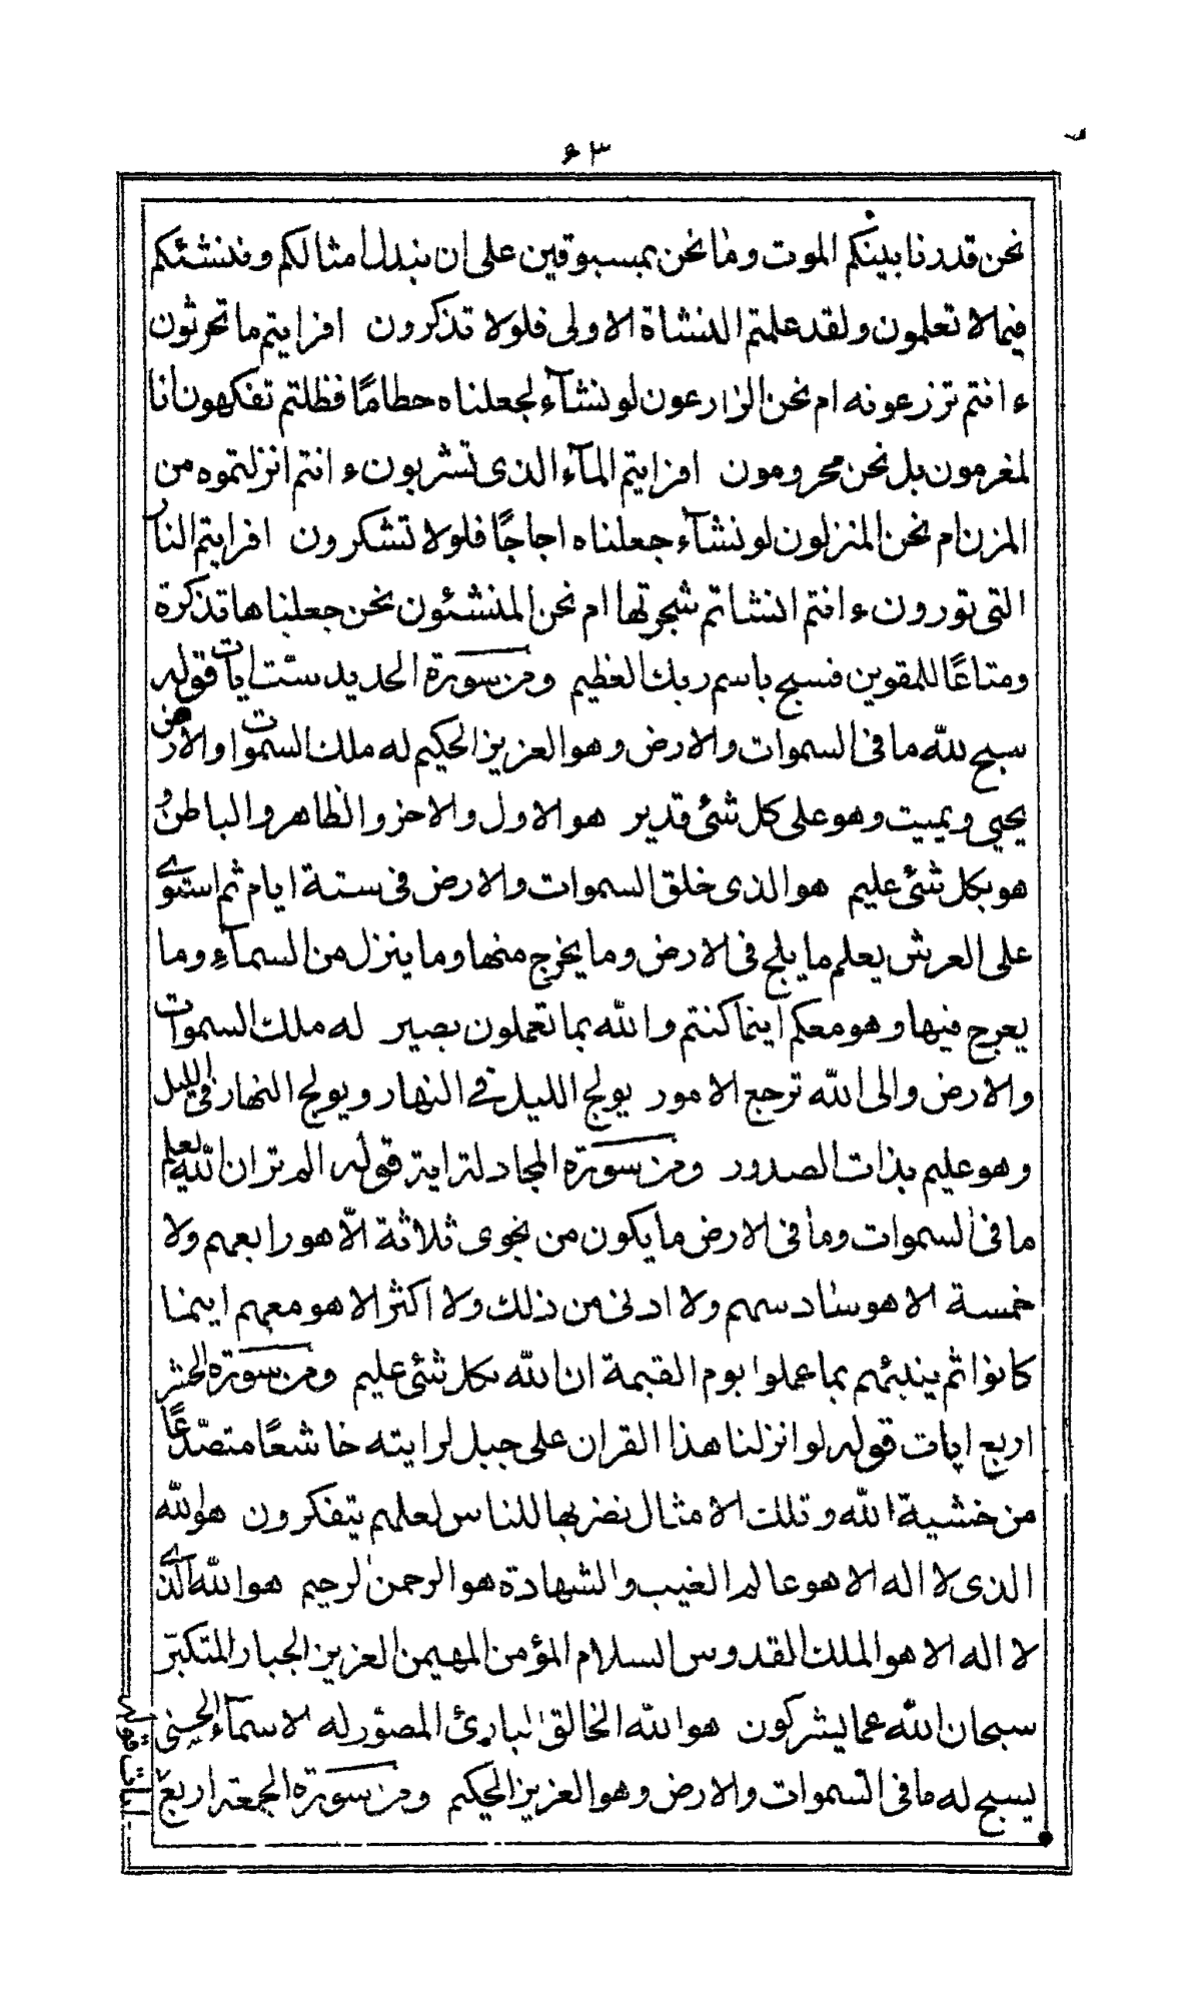 ٤٣
نحن قدرنا بينكم الموت وما نحن بمسبوقين على ان نبدل امثالكم وننشئكم
فيما لا تعلمون ولقد علمتم النشاة الاولى فلولا تذكرون افرايتم ما تحرثون
ء انتم تزرعونه ام نحن الزارعون لو نشآء لجعلناه حطامًا فظلتم تفكهون انا
لمغرمون بل نحن محرومون افرايتم المآء الذى تشربون ء انتم انزلتموه من
المزن ام نحن المنزلون لو نشآء جعلناه اجاجًا فلولا تشكرون افرايتم النار
التى تورون ء انتم انشاتم شجرتها ام نحن المنشئون نحن جعلناها تذكرة
ومتاعًا للمقوين فسبح باسم ربك العظيم ومن سورة الحديد ستّ ايات قوله
سبح لله ما فى السموات والارض وهو العزيز الحكيم له ملك السموات والارض
يحيي ويميت وهو على كل شئ قدير هو الاول والاخر والظاهر والباطن و
هو بكل شئ عليم هو الذى خلق السموات والارض فى ستة ايام ثم استوى
على العرش يعلم ما يلج فى الارض وما يخرج منها وما ينزل من السمآء وما
يعرج فيها وهو معكم اينما كنتم والله بما تعملون بصير له ملك السموات
والارض والى الله ترجع الامور يولج الليل فى النهار ويولج النهار فى الليل
وهو عليم بذات الصدور ومن سورة المجادلة اية قوله الم تر ان الله يعلم
ما فى السموات وما فى الارض ما يكون من نجوى ثلاثة الّا هو رابعهم ولا
خمسة الا هو سادسهم ولا ادنى من ذلك ولا اكثر الا هو معهم اينما
كانوا ثم ينبئهم بما عملوا يوم القيمة ان الله بكل شئ عليم ومن سورة الحشر
اربع ايات قوله لو انزلنا هذا القران على جبل لرايته خاشعًا متصدّعًا
من خشية الله وتلك الامثال نضربها للناس لعلهم يتفكرون هو الله
الذى لا اله الا هو عالم الغيب والشهادة هو الرحمن الرحيم هو الله الذى
لا اله الا هو الملك القدوس السلام المؤمن المهيمن العزيز الجبار المتكبّر
سبحان الله عما يشركون هو الله الخالق البارئ المصوّر له الاسمآء الحسنى
يسبح له ما فى السموات والارض وهو العزيز الحكيم ومن سورة الجمعة اربع
ايات قوله